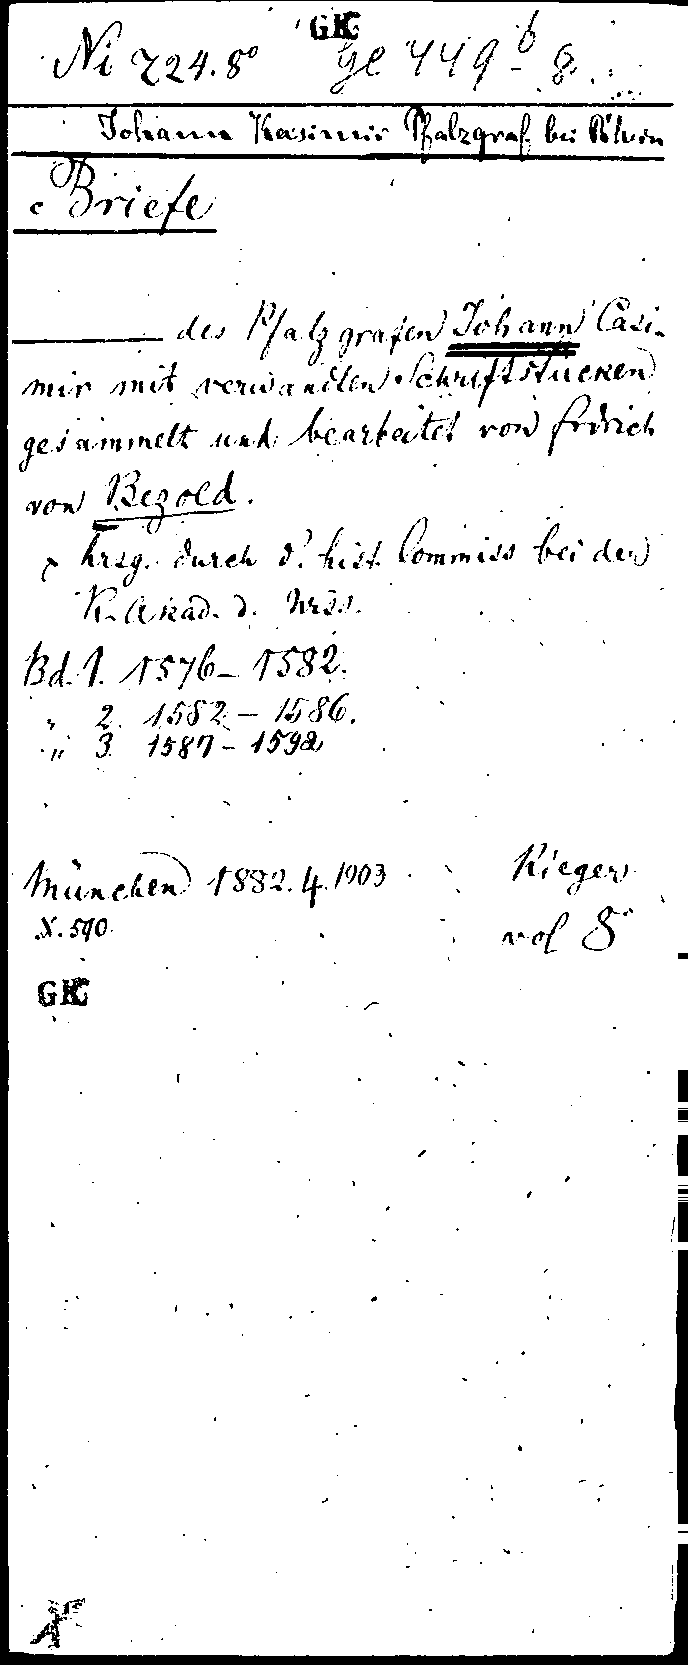 GK
Ni 724.8° Ge 449 b 8.
Johann Kasimir Pfalzgraf bei Rhein
Briefe
——— des Pfalzgrafen Johann Casi-
mir mit verwandten Schriftstücken
gesammelt und bearbeitet von Fridrich
von Bezold.
hrsg. durch d. hist. Commiss bei der
K. Akad. d. Wiss.
Bd. 1. 1576–1582.
" 2. 1582–1586.
" 3. 1587–1592
München 1882.4.1903 Rieger
X.590. vol 8°
GK